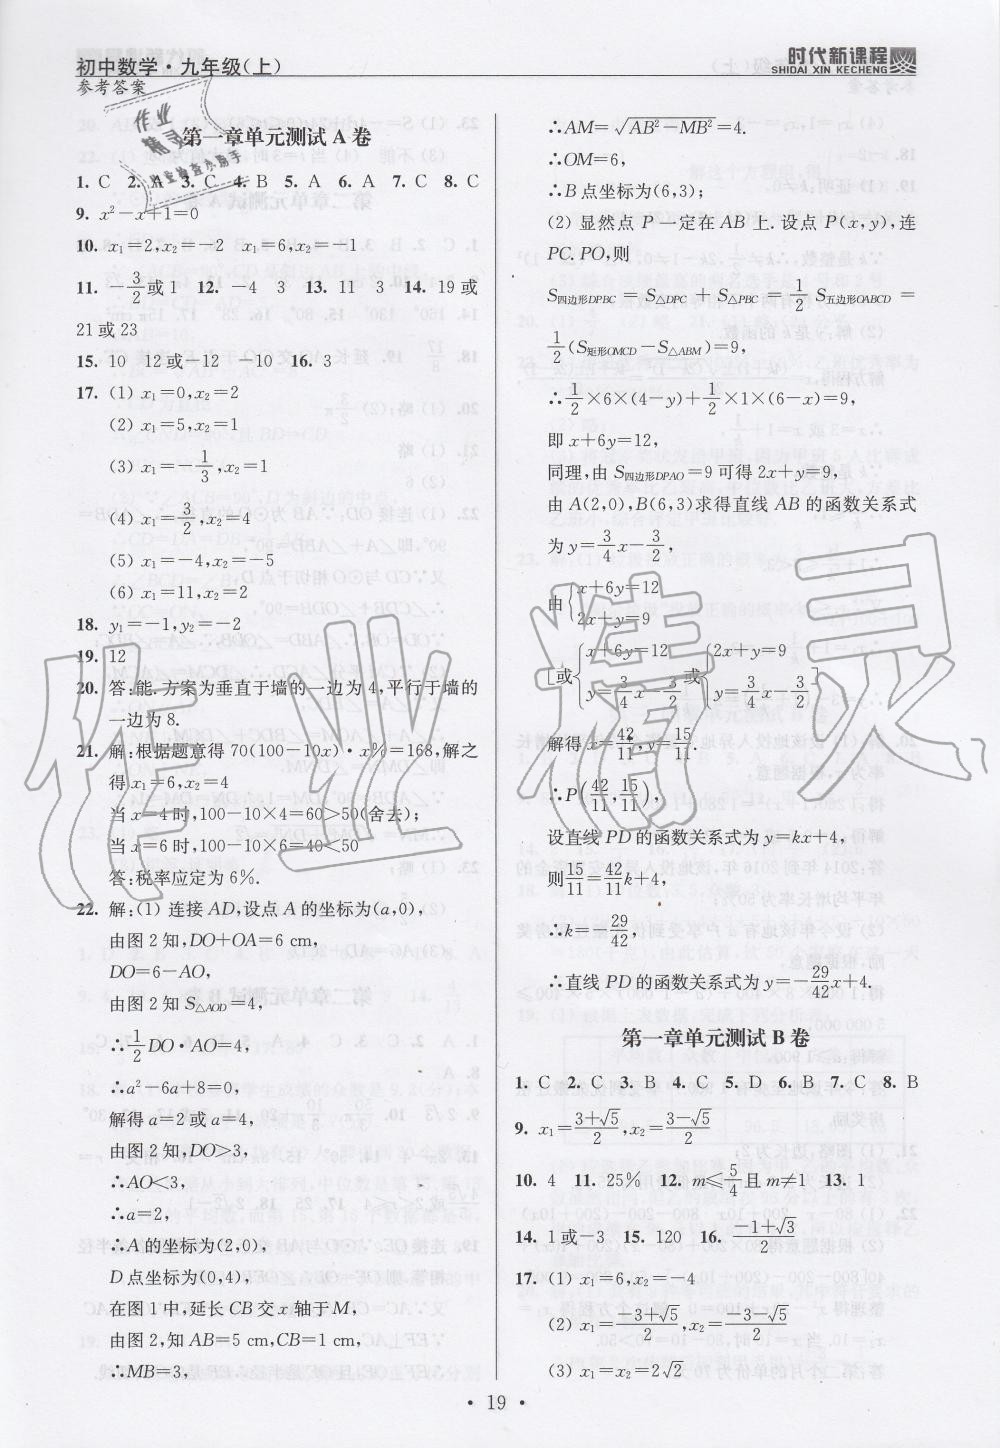 初中数学·九年级(上)
参考答案
时代新课程
SHIDAI XIN KECHENG
第一章单元测试A卷
1. C 2. A 3. C 4. B 5. A 6. A 7. C 8. C
9. x²-x+1=0
10. x₁=2,x₂=-2 x₁=6,x₂=-1
11. -3/2或1 12. -4 3 13. 11 3 14. 19或
21或23
15. 10 12或-12 -10 16. 3
17. (1) x₁=0,x₂=2
(2) x₁=5,x₂=1
(3) x₁=-1/3,x₂=1
(4) x₁=3/2,x₂=4
(5) x₁=-4,x₂=-5
(6) x₁=11,x₂=2
18. y₁=-1,y₂=-2
19. 12
20. 答:能.方案为垂直于墙的一边为4,平行于墙的
一边为8.
21. 解:根据题意得70(100-10x)·x%=168,解之
得x₁=6,x₂=4
当x=4时,100-10×4=60>50(舍去);
当x=6时,100-10×6=40<50
答:税率应定为6%.
22. 解:(1) 连接AD,设点A的坐标为(a,0),
由图2知,DO+OA=6 cm,
DO=6-AO,
由图2知S△AOD=4,
∴1/2 DO·AO=4,
∴a²-6a+8=0,
解得a=2或a=4,
由图2知,DO>3,
∴AO<3,
∴a=2,
∴A的坐标为(2,0),
D点坐标为(0,4),
在图1中,延长CB交x轴于M,
由图2,知AB=5 cm,CB=1 cm,
∴MB=3,
∴AM=√(AB²-MB²)=4.
∴OM=6,
∴B点坐标为(6,3);
(2) 显然点P一定在AB上.设点P(x,y),连
PC.PO,则
S四边形DPBC=S△DPC+S△PBC=1/2 S五边形OABCD=
1/2(S矩形OMCD-S△ABM)=9,
∴1/2×6×(4-y)+1/2×1×(6-x)=9,
即x+6y=12,
同理,由S四边形DPAO=9可得2x+y=9,
由A(2,0),B(6,3)求得直线AB的函数关系式
为y=3/4x-3/2,
由{x+6y=12
2x+y=9
[或{x+6y=12 y=3/4x-3/2 或{2x+y=9 y=3/4x-3/2]
解得x=42/11,y=15/11.
∴P(42/11,15/11),
设直线PD的函数关系式为y=kx+4,
则15/11=42/11k+4,
∴k=-29/42,
∴直线PD的函数关系式为y=-29/42x+4.
第一章单元测试B卷
1. C 2. C 3. B 4. C 5. D 6. B 7. C 8. B
9. x₁=(3+√5)/2,x₂=(3-√5)/2
10. 4 11. 25% 12. m≤5/4且m≠1 13. 1
14. 1或-3 15. 120 16. (-1+√3)/2
17. (1) x₁=6,x₂=-4
(2) x₁=(-3+√5)/2,x₂=(-3-√5)/2
(3) x₁=x₂=2√2
· 19 ·
作业精灵